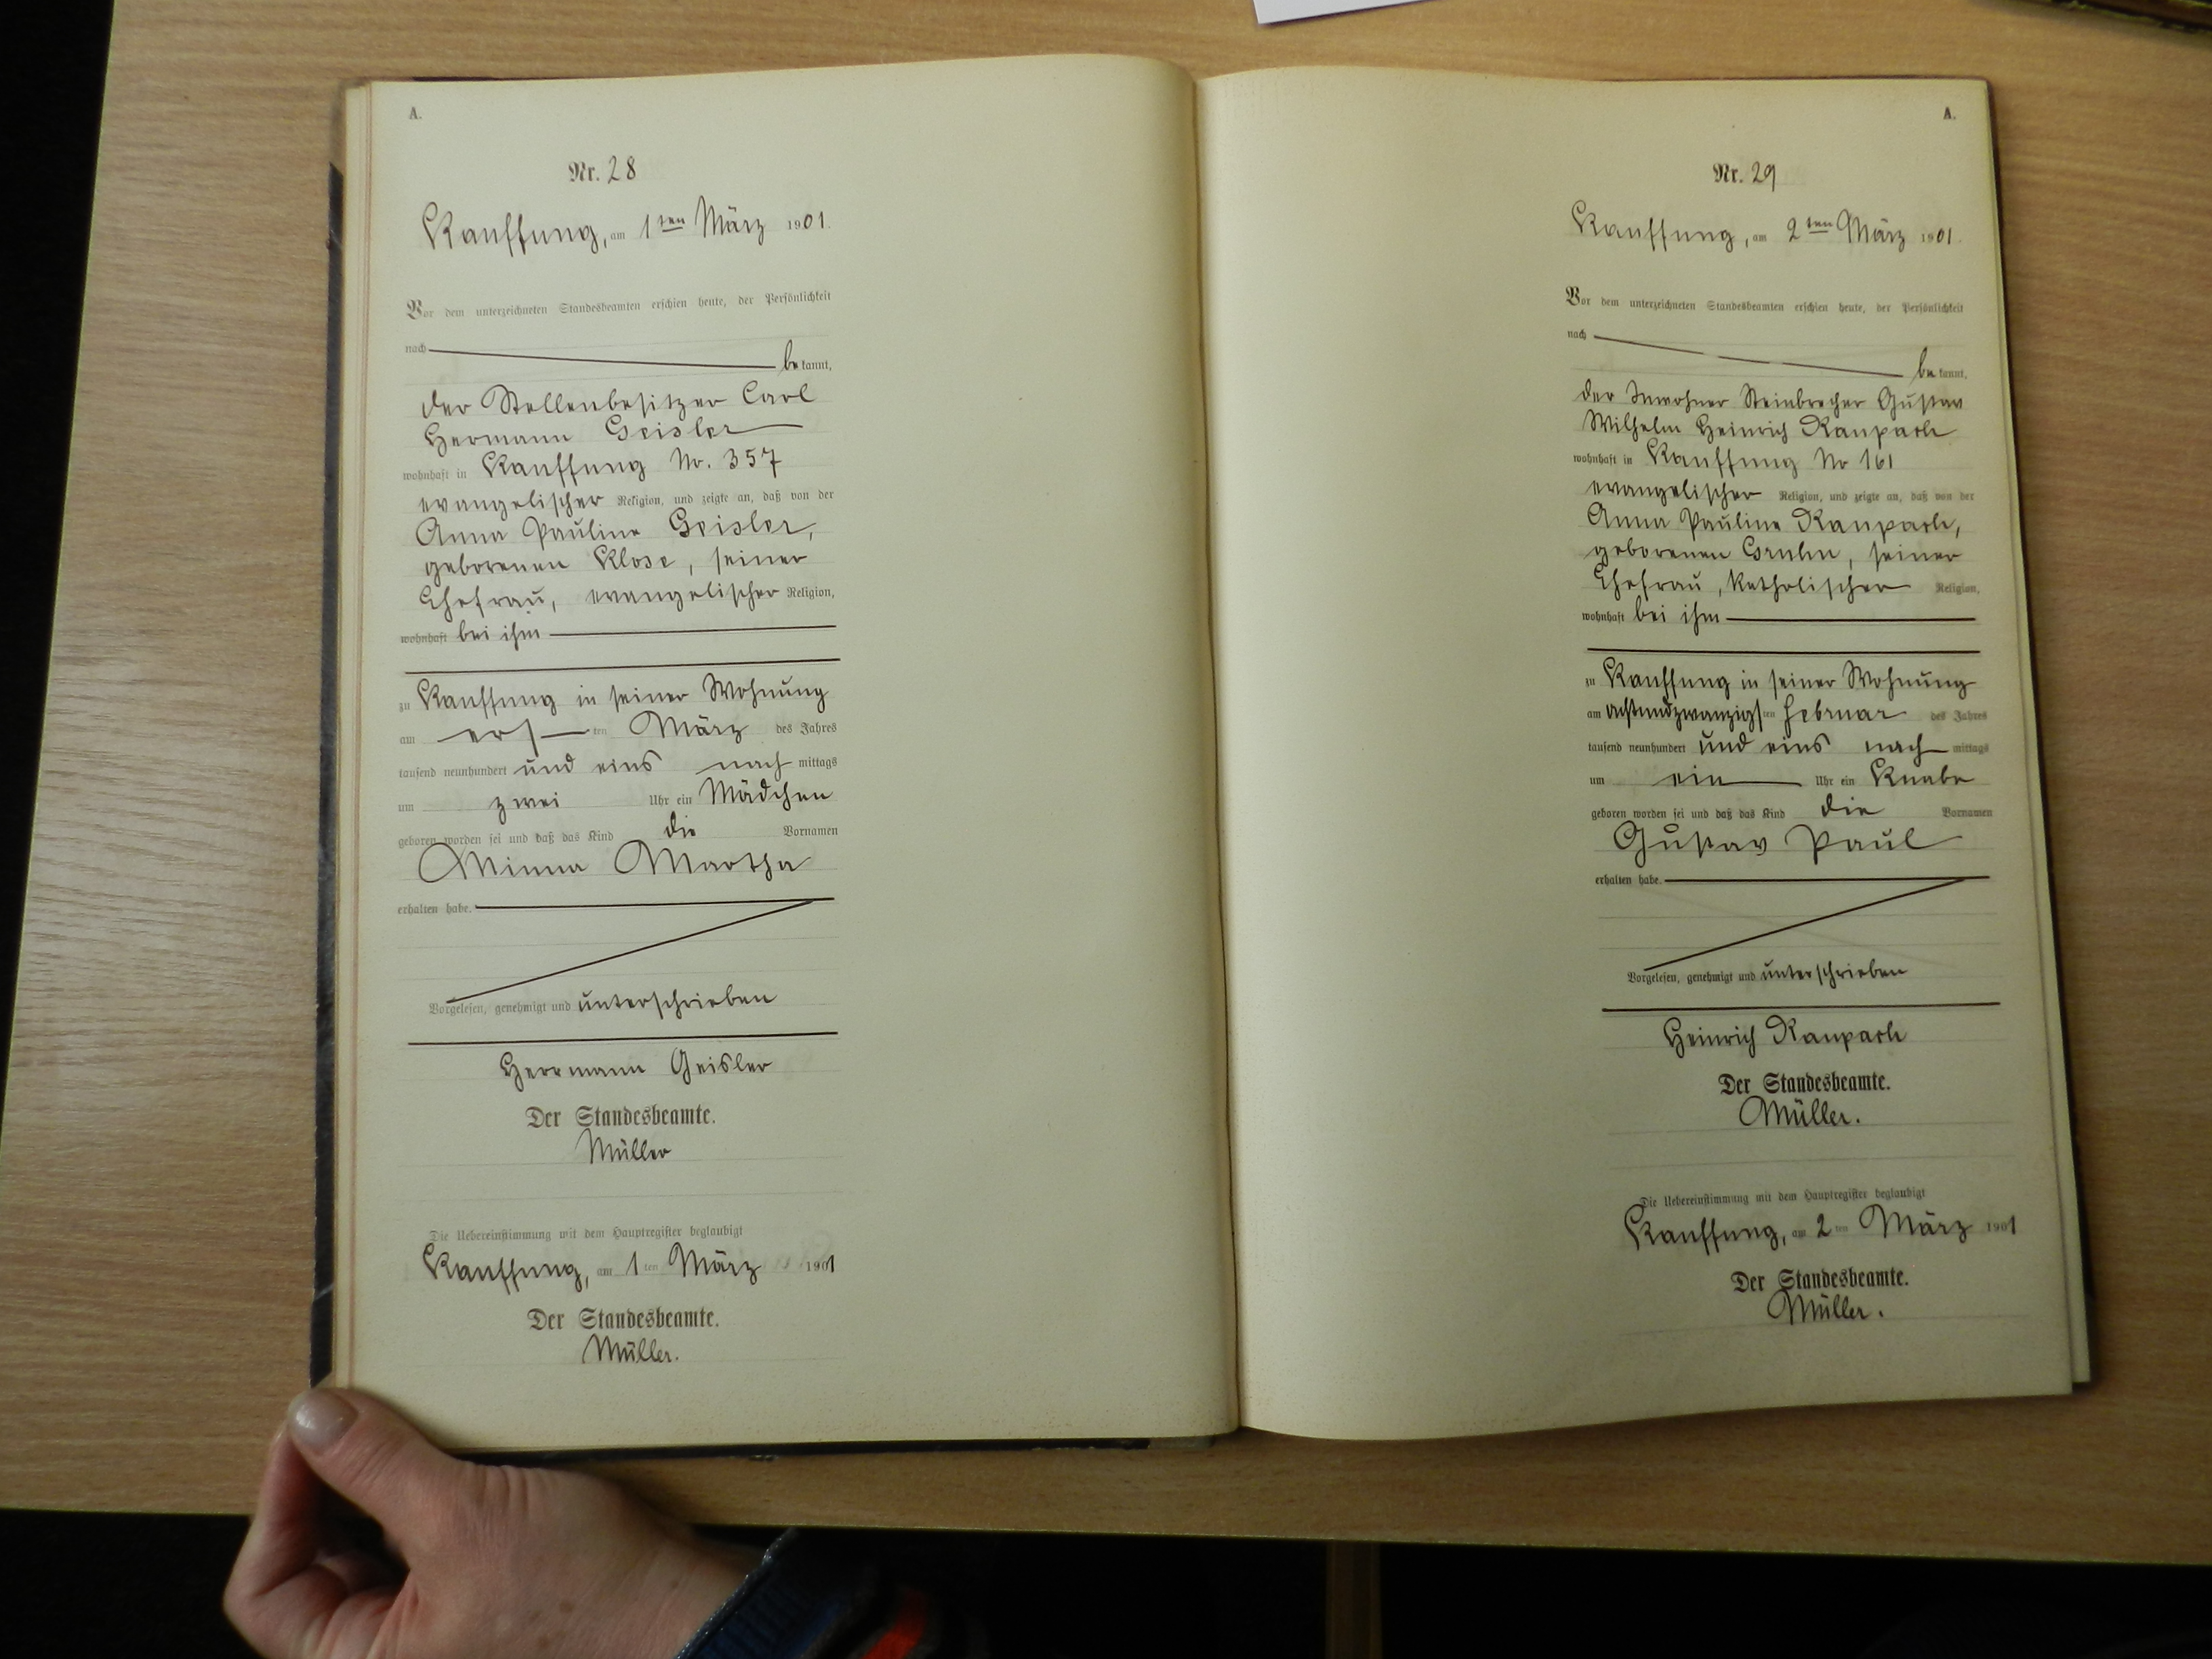 A.
Nr. 28
Kauffung, am 1ten März 1901.
Vor dem unterzeichneten Standesbeamten erschien heute, der Persönlichkeit
nach
bekannt,
der Stellenbesitzer Carl
Hermann Geisler
wohnhaft in Kauffung No. 357
evangelischer Religion, und zeigte an, daß von der
Anna Pauline Geisler,
geborenen Klose, seiner
Ehefrau, evangelischer Religion,
wohnhaft bei ihm
zu Kauffung in seiner Wohnung
am ersten März des Jahres
tausend neunhundert und eins nachmittags
um zwei Uhr ein Mädchen
geboren worden sei und daß das Kind die Vornamen
Minna Martha
erhalten habe.
Vorgelesen, genehmigt und unterschrieben
Herrmann Geisler
Der Standesbeamte.
Müller
Die Uebereinstimmung mit dem Hauptregister beglaubigt
Kauffung, am 1ten März 1901
Der Standesbeamte.
Müller.
A.
Nr. 29
Kauffung, am 2ten März 1901.
Vor dem unterzeichneten Standesbeamten erschien heute, der Persönlichkeit
nach
bekannt,
der Inwohner Steinbrecher Gustav
Wilhelm Heinrich Raupach
wohnhaft in Kauffung No 161
evangelischer Religion, und zeigte an, daß von der
Anna Pauline Raupach,
geborenen Gruhn, seiner
Ehefrau, katholischer Religion,
wohnhaft bei ihm
zu Kauffung in seiner Wohnung
am achtundzwanzigsten Februar des Jahres
tausend neunhundert und eins nachmittags
um ein Uhr ein Knabe
geboren worden sei und daß das Kind die Vornamen
Gustav Paul
erhalten habe.
Vorgelesen, genehmigt und unterschrieben
Heinrich Raupach
Der Standesbeamte.
Müller.
Die Uebereinstimmung mit dem Hauptregister beglaubigt
Kauffung, am 2ten März 1901
Der Standesbeamte.
Müller.